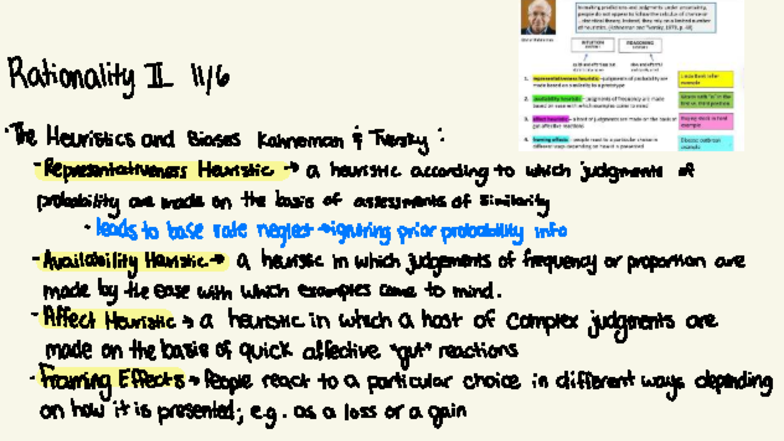 In making predictions and judgments under uncertainty,
people do not appear to follow the calculus of chance or
statistical theory. Instead, they rely on a limited number
of heuristics. (Kahneman and Tversky, 1973, p.
INTUITION
REASONING
1. representativeness heuristic – judgments of probability are
made based on similarity to a prototype
2. availability heuristic – judgments of frequency are made
based on ease with which examples come to mind
3. affect heuristic – a host of judgments are made on the basis of
gut affective reactions
4. framing effects – people react to a particular choice in
different ways depending on how it is presented
example
first vs. third position
example
Disease outbreak
example
Rationality II 11/6
• The Heuristics and Biases Kahneman & Tversky :
- Representativeness Heuristic → a heuristic according to which judgments of
probability are made on the basis of assessments of similarity
• leads to base rate neglect → ignoring prior probability info
- Availability Heuristic → a heuristic in which judgements of frequency or proportion are
made by the ease with which examples come to mind.
- Affect Heuristic → a heuristic in which a host of complex judgments are
made on the basis of quick affective "gut" reactions
- Framing Effects → People react to a particular choice in different ways depending
on how it is presented; e.g. as a loss or a gain